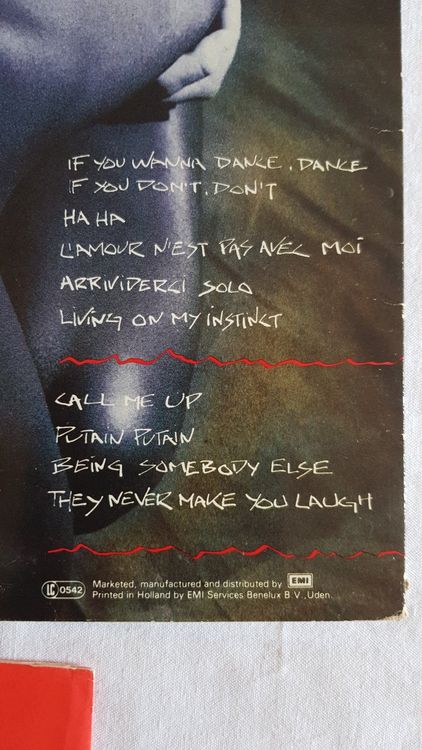 IF YOU WANNA DANCE, DANCE
IF YOU DON'T, DON'T
HA HA
L'AMOUR N'EST PAS AVEC MOI
ARRIVIDERCI SOLO
LIVING ON MY INSTINCT
CALL ME UP
PUTAIN PUTAIN
BEING SOMEBODY ELSE
THEY NEVER MAKE YOU LAUGH
LC 0542 Marketed, manufactured and distributed by EMI
Printed in Holland by EMI Services Benelux B.V., Uden.